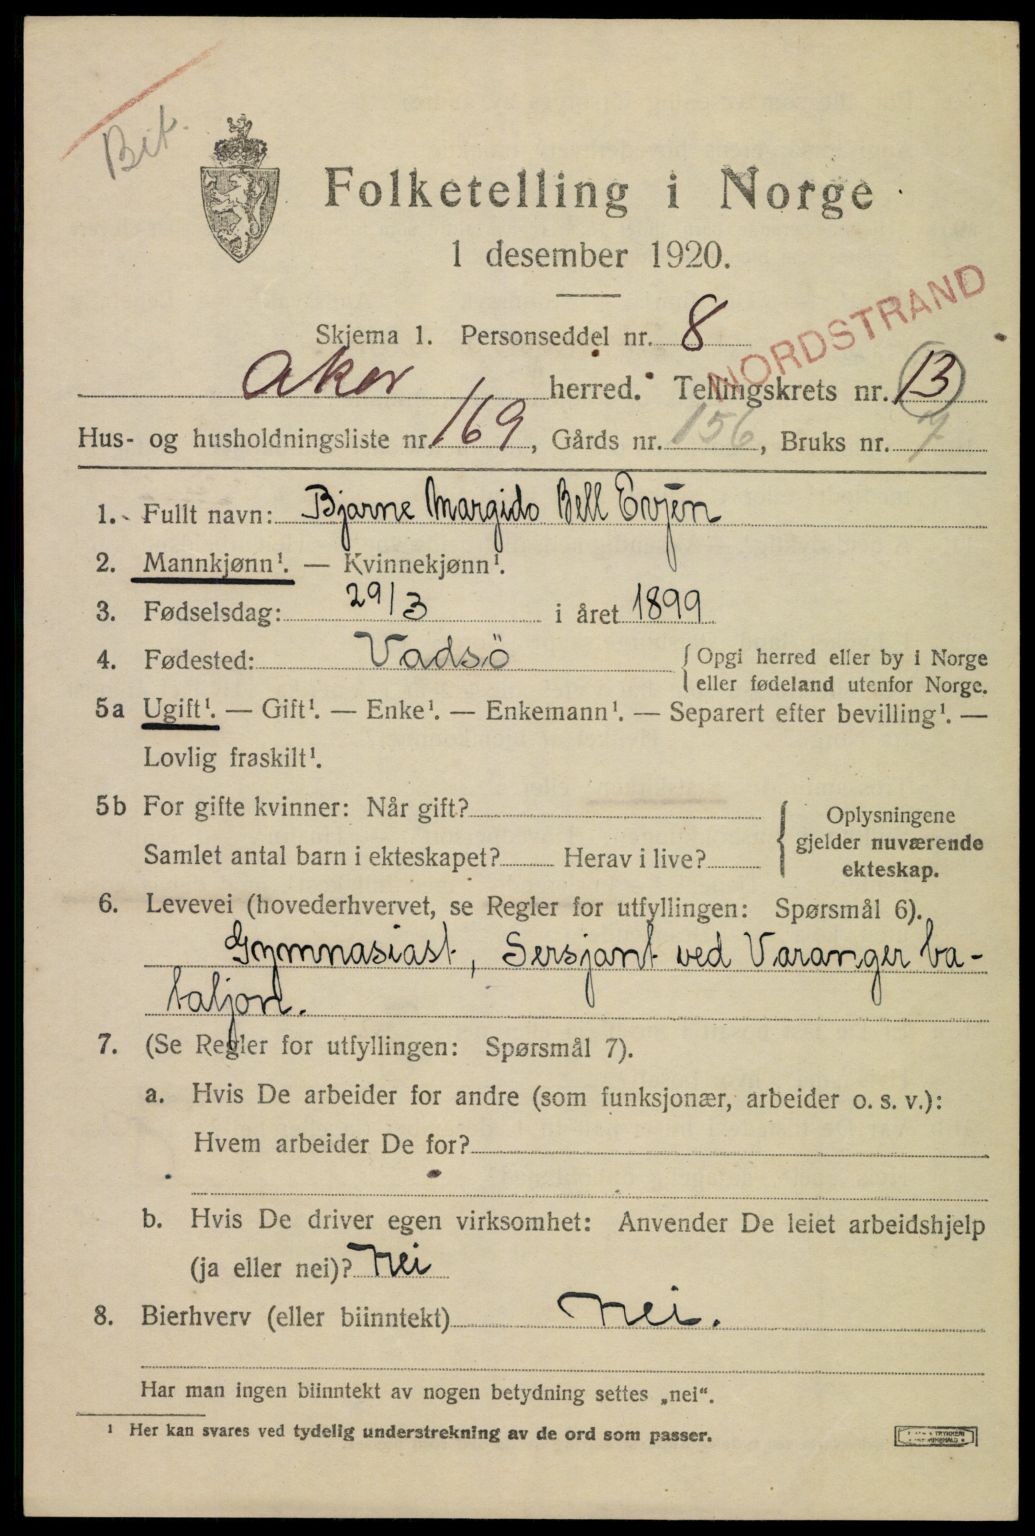 Bit.
Folketelling i Norge
1 desember 1920.
Skjema 1. Personseddel nr. 8
NORDSTRAND
Aker herred. Tellingskrets nr. 13
Hus- og husholdningsliste nr. 169, Gårds nr. 156, Bruks nr. 7
1. Fullt navn: Bjarne Margido Bell Evjen
2. Mannkjønn¹. — Kvinnekjønn¹.
3. Fødselsdag: 29/3 i året 1899
4. Fødested: Vadsö {Opgi herred eller by i Norge
eller fødeland utenfor Norge.
5a Ugift¹. — Gift¹. — Enke¹. — Enkemann¹. — Separert efter bevilling¹. —
Lovlig fraskilt¹.
5b For gifte kvinner: Når gift?
Samlet antal barn i ekteskapet? Herav i live?
Oplysningene
gjelder nuværende
ekteskap.
6. Levevei (hovederhvervet, se Regler for utfyllingen: Spørsmål 6).
Gymnasiast, Sersjant ved Varanger ba-
taljon.
7. (Se Regler for utfyllingen: Spørsmål 7).
a. Hvis De arbeider for andre (som funksjonær, arbeider o. s. v.):
Hvem arbeider De for?
b. Hvis De driver egen virksomhet: Anvender De leiet arbeidshjelp
(ja eller nei)? Nei
8. Bierhverv (eller biinntekt) Nei.
Har man ingen biinntekt av nogen betydning settes „nei“.
¹ Her kan svares ved tydelig understrekning av de ord som passer.